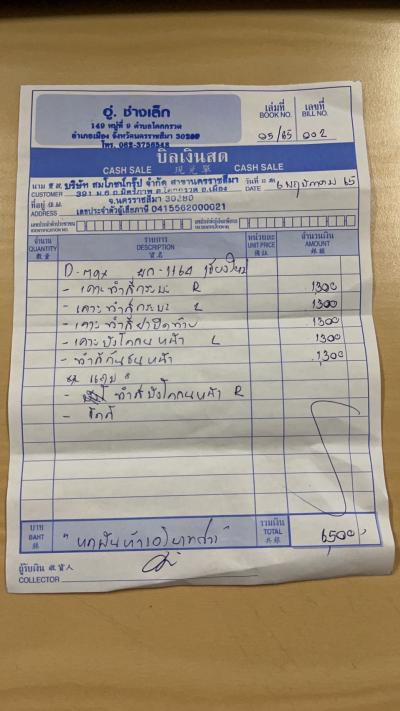 อู่. ช่างเล็ก
149 หมู่ที่ 9 ตำบลโคกกรวด
อำเภอเมือง จังหวัดนครราชสีมา 30280
โทร. 062-3756548
เล่มที่ เลขที่
BOOK NO. BILL NO.
05/65 002
บิลเงินสด
CASH SALE 現兌單 CASH SALE
นาม บริษัท สมโภชน์กรุ๊ป จำกัด สาขานครราชสีมา วันที่ 6 พฤษภาคม 65
CUSTOMER 391 ม.6 ถ.มิตรภาพ ต.โคกกรวด อ.เมือง DATE
ที่อยู่ จ.นครราชสีมา 30280
ADDRESS เลขประจำตัวผู้เสียภาษี 0415562000021
จำนวน รายการ หน่วยละ จำนวนเงิน
QUANTITY DESCRIPTION UNIT PRICE AMOUNT
D-max ผก-1164 เชียงใหม่
- เคาะทำสีกระบะ R 1,300
- เคาะทำสีกระบะ L 1,300
- เคาะทำสีฝาปิดท้าย 1,300
- เคาะบังโคลนหน้า L 1,300
- ทำสีกันชนหน้า 1,300
" แถม "
- ทำสีบังโคลนหน้า R
-
บาท รวมเงิน
BAHT "หกพันห้าร้อยบาทถ้วน" TOTAL 6,500
ผู้รับเงิน 收貨人
COLLECTOR